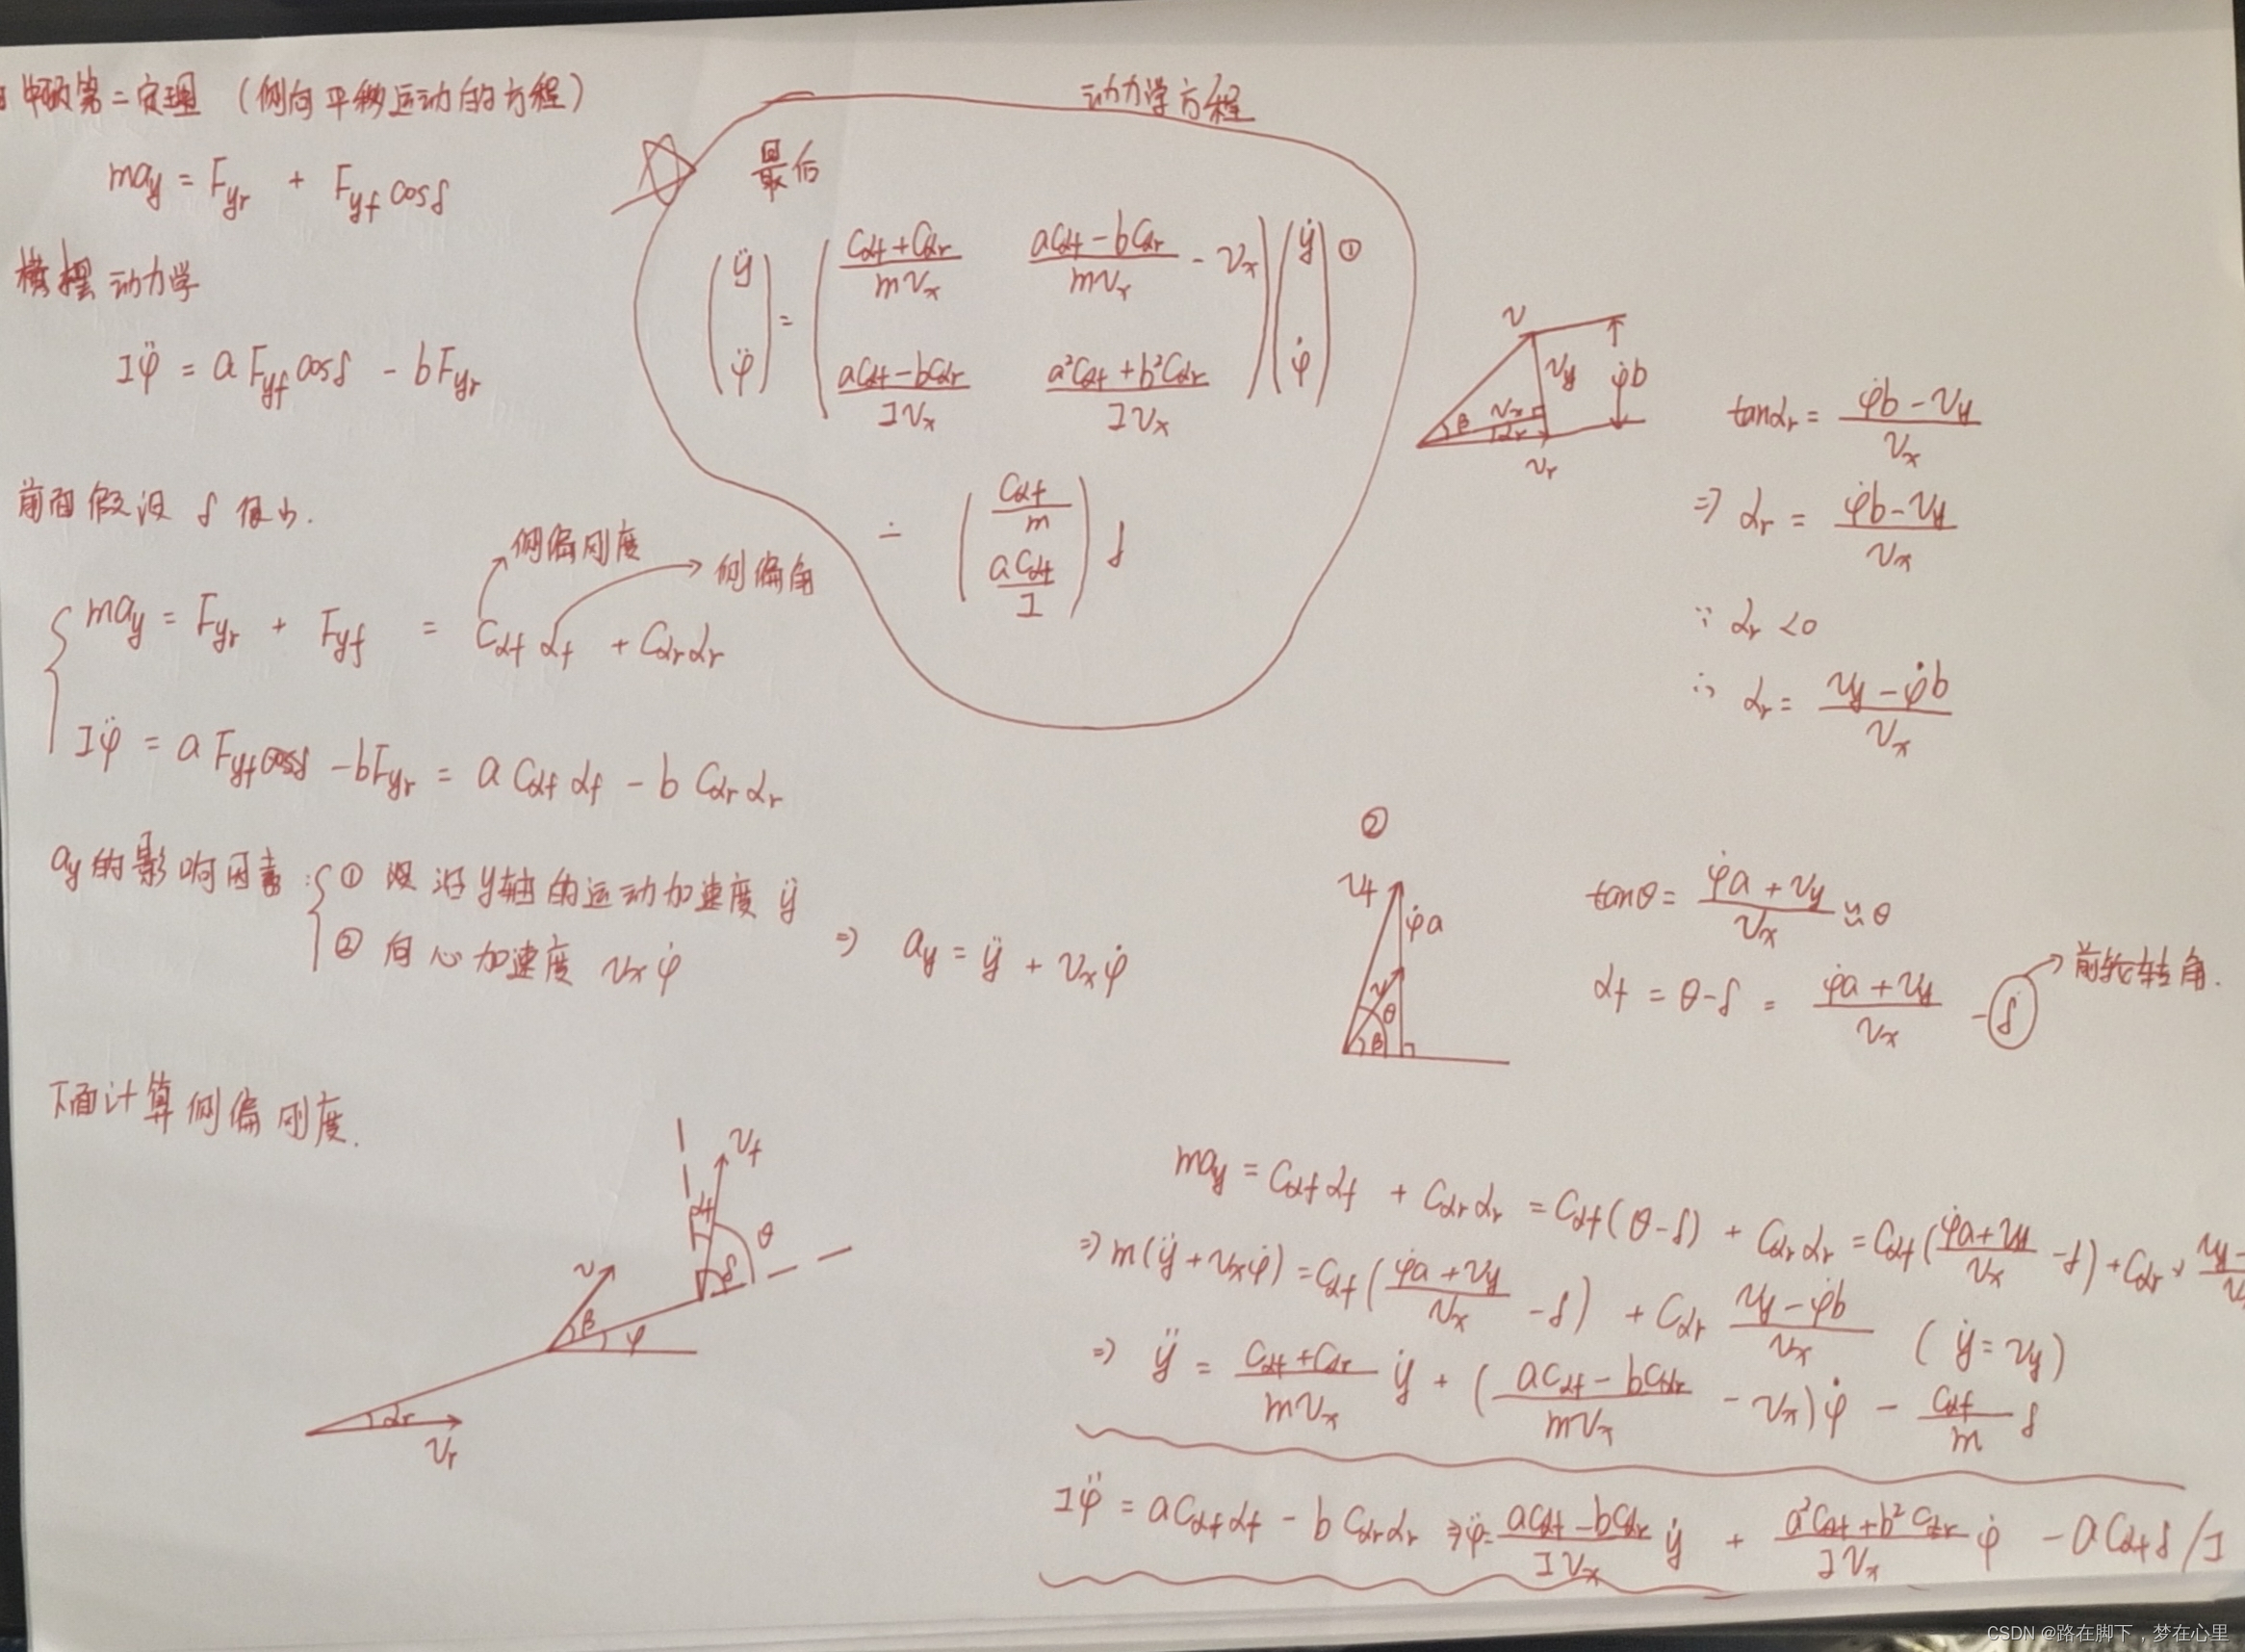 牛顿第二定理 (侧向平移运动的方程)
may = Fyr + Fyf cosδ
横摆动力学
Iφ̈ = a Fyf cosδ - bFyr
前面假设 δ 很小.
may = Fyr + Fyf = Cαf αf + Cαr αr
侧偏刚度
侧偏角
Iφ̈ = a Fyf cosδ - bFyr = a Cαf αf - b Cαr αr
ay的影响因素:
① 沿y轴的运动加速度 ÿ
② 向心加速度 vxφ̇
⇒ ay = ÿ + vxφ̇
下面计算侧偏刚度.
vf
αf
θ
δ
v
β
φ
αr
vr
动力学方程
最后
(ÿ φ̈) = ( (Cαf+Cαr)/(mvx) (aCαf-bCαr)/(mvx) - vx
(aCαf-bCαr)/(Ivx) (a²Cαf+b²Cαr)/(Ivx) ) (ẏ φ̇)
- ( Cαf/m aCαf/I ) δ
①
v
vy
φ̇b
β
vx
αr
vr
tanαr = (φ̇b-vy)/vx
⇒ αr = (φ̇b-vy)/vx
∵ αr <0
∴ αr = (vy-φ̇b)/vx
②
vf
φ̇a
v
θ
β
tanθ = (φ̇a+vy)/vx ≈ θ
αf = θ-δ = (φ̇a+vy)/vx - δ
前轮转角.
may = Cαf αf + Cαr αr = Cαf(θ-δ) + Cαr αr = Cαf((φ̇a+vy)/vx - δ) + Cαr ×
⇒ m(ÿ+vxφ̇) = Cαf((φ̇a+vy)/vx - δ) + Cαr (vy-φ̇b)/vx (ẏ=vy)
⇒ ÿ = (Cαf+Cαr)/(mvx) ẏ + ((aCαf-bCαr)/(mvx) - vx)φ̇ - Cαf/m δ
Iφ̈ = aCαf αf - b Cαr αr ⇒ φ̈ = (aCαf-bCαr)/(Ivx) ẏ + (a²Cαf+b²Cαr)/(Ivx) φ̇ - aCαfδ/I
CSDN @路在脚下,梦在心里